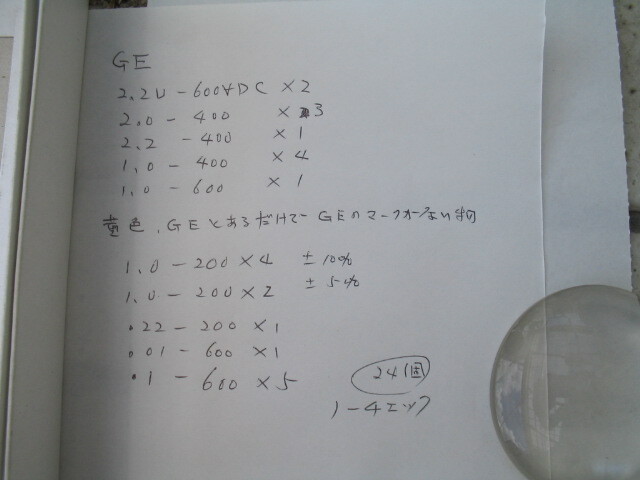 GE
2.2U - 600VDC × 2
2.0 - 400 × 3
2.2 - 400 × 1
1.0 - 400 × 4
1.0 - 600 × 1
黄色、GEとあるだけで GEのマークがない物
1.0 - 200 × 4 ± 10%
1.0 - 200 × 2 ± 5%
.22 - 200 × 1
.01 - 600 × 1
.1 - 600 × 5
24個